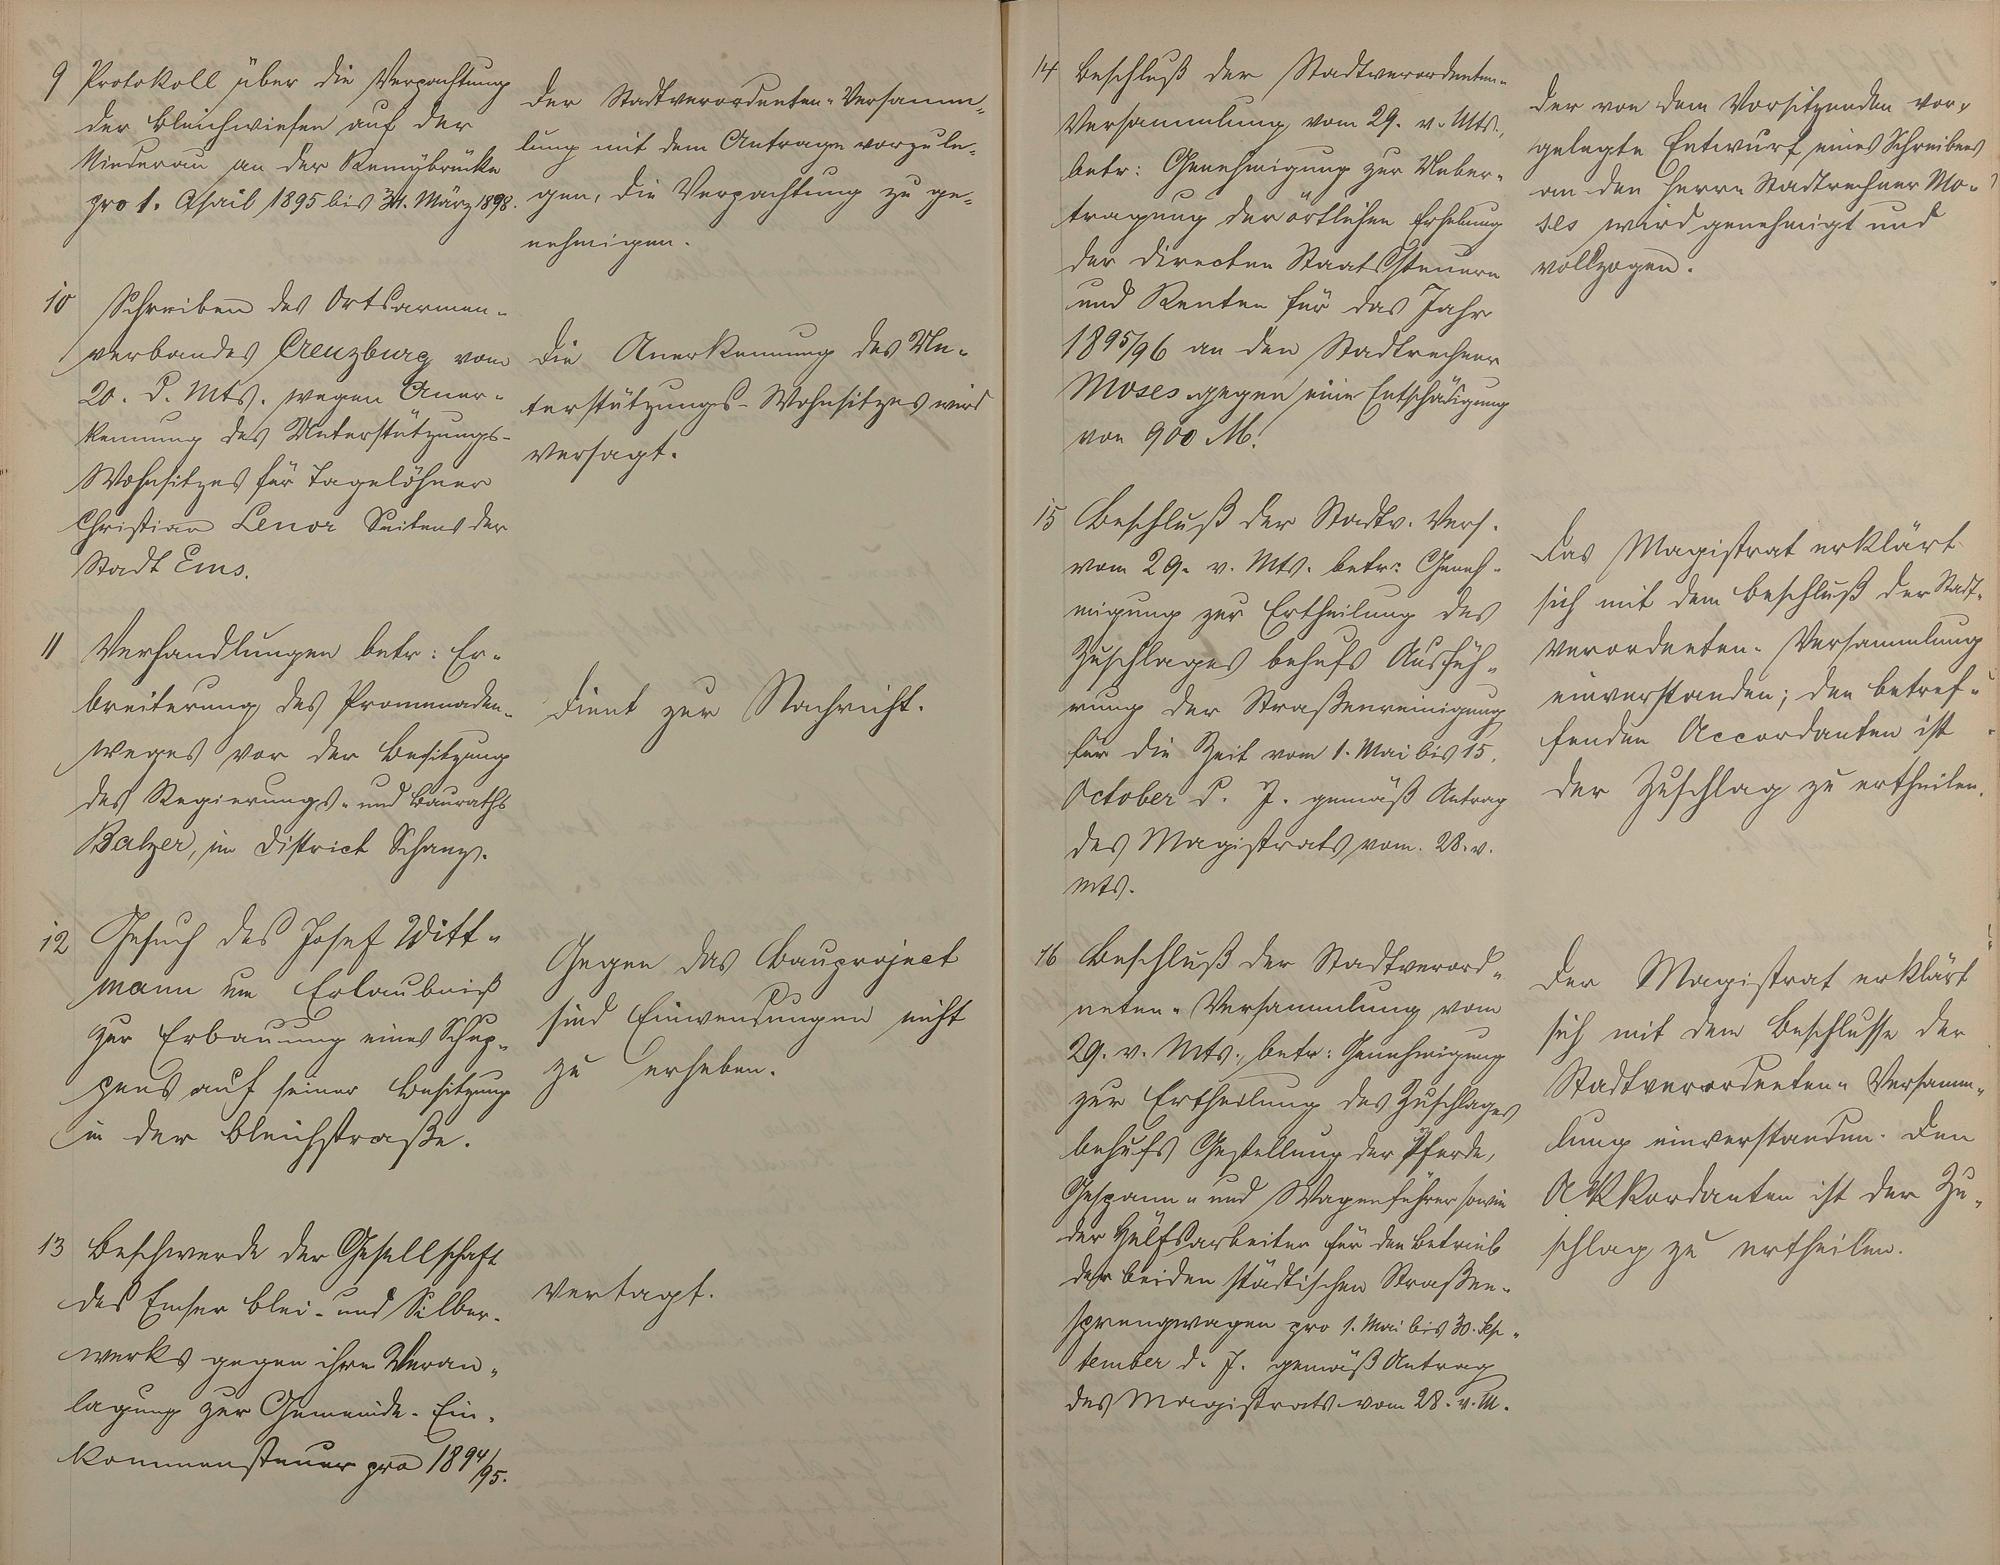 9 Protokoll über die Verpachtung
der Bleichwiesen auf der
Niederau an der Remybrücke
pro 1. April 1895 bis 31. März 1898.
Der Stadtverordneten-Versamm-
lung mit dem Antrage vorzule-
gen, die Verpachtung zu ge-
nehmigen.
10 Schreiben des Ortsarmen-
verbandes Creuzburg vom
20. d. Mts. wegen Aner-
kennung des Unterstützungs-
Wohnsitzes für Tagelöhner
Christian Lenor Seitens der
Stadt Ems.
Die Anerkennung des Un-
terstützungs-Wohnsitzes wird
versagt.
11 Verhandlungen betr: Er-
breiterung des Promenaden-
weges vor der Besitzung
des Regierungs- und Bauraths
Balzer, im District Schanz.
Dient zur Nachricht.
12 Gesuch des Josef Witt-
mann um Erlaubniß
zur Erbauung eines Schup-
pens auf seiner Besitzung
in der Bleichstraße.
Gegen das Bauproject
sind Einwendungen nicht
zu erheben.
13 Beschwerde der Gesellschaft
des Emser Blei- und Silber-
werks gegen ihre Veran-
lagung zur Gemeinde-Ein-
kommensteuer pro 1894/95.
Vertagt.
14 Beschluß der Stadtverordneten-
Versammlung vom 29. v. Mts.,
betr: Genehmigung zur Ueber-
tragung der örtlichen Erhebung
der directen Staatssteuern
und Renten für das Jahr
1895/96 an den Stadtrechner
Moses gegen eine Entschädigung
von 900 M.
Der von dem Vorsitzenden vor-
gelegte Entwurf eines Schreibens
an den Herrn Stadtrechner Mo-
ses wird genehmigt und
vollzogen.
15 Beschluß der Stadtv. Vers.
vom 29. v. Mts. betr: Geneh-
migung zur Ertheilung des
Zuschlages behufs Ausfüh-
rung der Straßenreinigung
für die Zeit vom 1. Mai bis 15.
October d. J. gemäß Antrag
des Magistrats vom. 28. v.
Mts.
Das Magistrat erklärt
sich mit dem Beschluß der Stadt-
verordneten-Versammlung
einverstanden; den betref-
fenden Accordanten ist
der Zuschlag zu ertheilen.
16 Beschluß der Stadtverord-
neten-Versammlung vom
29. v. Mts., betr: Genehmigung
zur Ertheilung des Zuschlages
behufs Gestellung der Pferde,
Gespann- und Wagenführer sowie
der Hülfsarbeiter für den Betrieb
der beiden städtischen Straßen-
sprengwagen pro 1. Mai bis 30. Sep-
tember d. J. gemäß Antrag
des Magistrats vom 28. v. M.
Der Magistrat erklärt
sich mit dem Beschlusse der
Stadtverordneten-Versamm-
lung einverstanden. Den
Akkordanten ist der Zu-
schlag zu ertheilen.